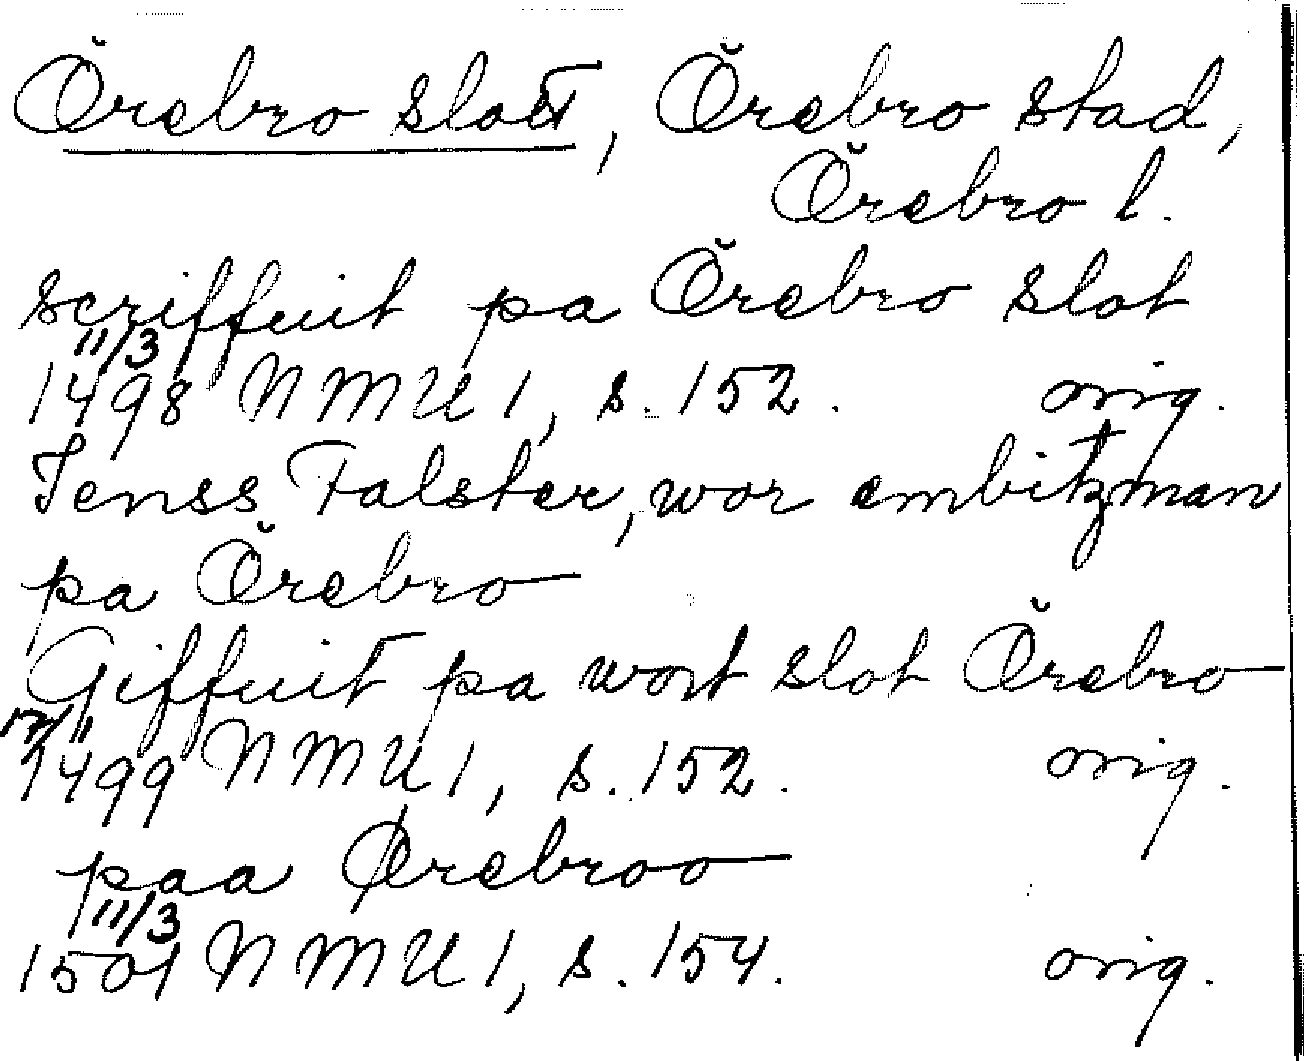 Örebro slott, Örebro stad,
Örebro l.
scriffuit pa Örebro slot
11/3
1498 NMU 1, s. 152. orig.
Jenss Falster, wor embitzman
pa Örebro
Giffuit pa wort slot Örebro
17/11
1499 NMU 1, s. 152. orig.
paa Ørebroo
11/3
1501 NMU 1, s. 154. orig.